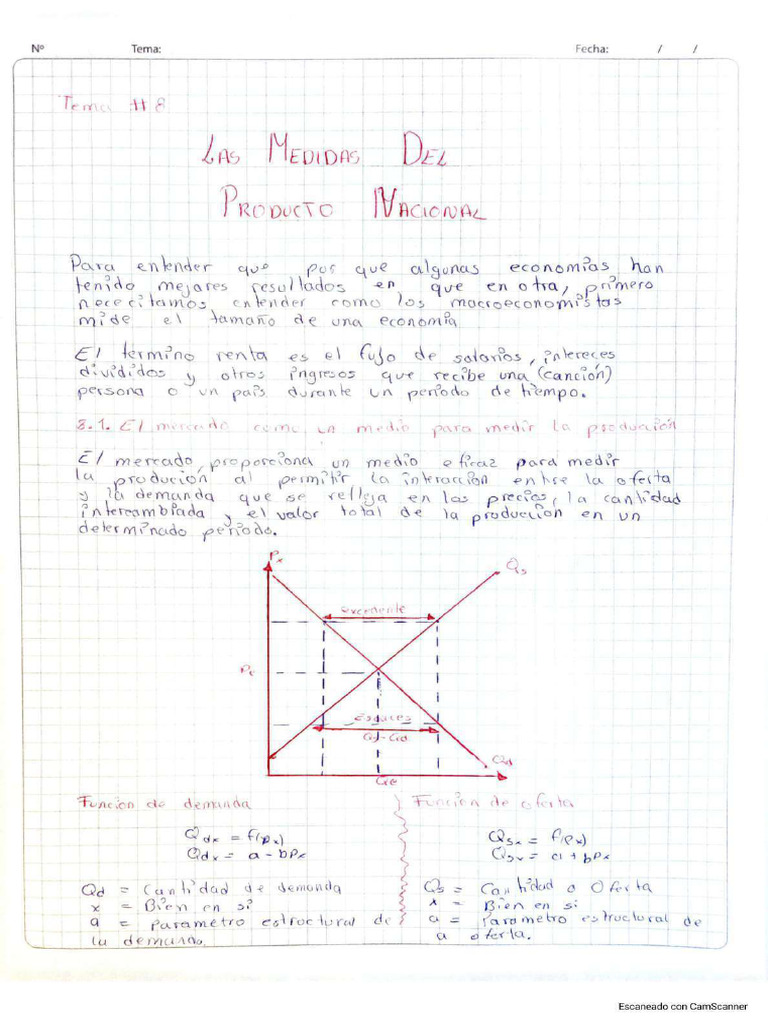 Nº Tema: Fecha: / /
Tema # 8
LAS MEDIDAS DEL
PRODUCTO NACIONAL
Para entender que por que algunas economías han
tenido mejares resultados en que en otra, primero
nececitamos entender como los macroeconomistas
mide el tamaño de una economía.
El término renta es el flujo de salarios, intereces
divididos y otros ingresos que recibe una (canción)
persona o un país durante un período de tiempo.
8.1. El mercado como un medio para medir la produción
El mercado, proporciona un medio eficaz para medir
la produción al permitir la interacción entre la oferta
y la demanda que se refleja en los precios, la cantidad
intercambiada y el valor total de la producción en un
determinado período.
Px
Qs
excedente
Pe
Escaces
Qs-Qd
Qd
Qe
Función de demanda
Función de oferta
Qdx = f(Px)
Qsx = f(Px)
Qdx = a - bPx
Qsx = a + bPx
Qd = Cantidad de demanda
Qs = Cantidad o Oferta
x = Bien en si
x = Bien en si
a = Parametro estructural de
la demanda.
a = Parametro estructural de
a oferta.
Escaneado con CamScanner